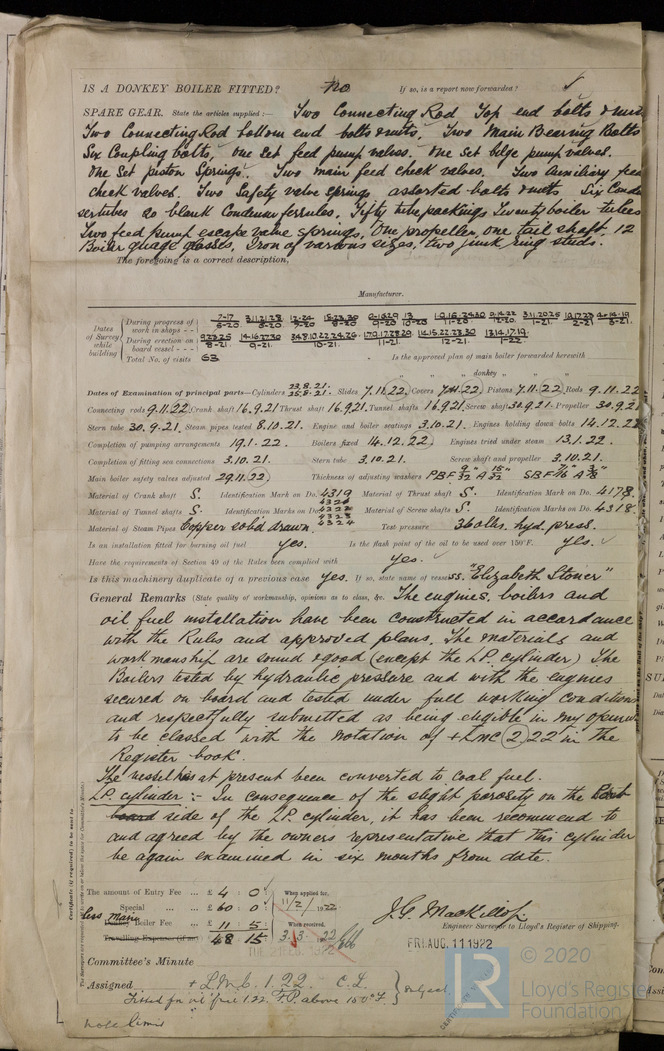 IS A DONKEY BOILER FITTED? No If so, is a report now forwarded? ✓
SPARE GEAR. State the articles supplied:— Two Connecting Rod Top end bolts & nuts
Two Connecting Rod bottom end bolts & nuts, Two Main Bearing Bolts
Six Coupling bolts, one set feed pump valves. One set bilge pump valves.
One set piston springs. Two main feed check valves. Two Auxiliary feed
check valves. Two Safety valve springs assorted bolts & nuts Six Conden
sertubes 20 blank Condenser ferrules. Fifty tube packings Twenty boiler tubes
Two feed pump escape valve springs, One propeller, one tail shaft, 12
Boiler guage glasses, Iron of various sizes, two junk ring studs.
The foregoing is a correct description,
Manufacturer.
Dates of Survey while building
During progress of work in shops - -
During erection on board vessel - - -
Total No. of visits 63
Is the approved plan of main boiler forwarded herewith
" " " donkey " " "
Dates of Examination of principal parts—Cylinders 23.8.21. 25.8.21. Slides 7.11.22. Covers 7.11.22 Pistons 7.11.22. Rods 9.11.22
Connecting rods 9.11.22 Crank shaft 16.9.21 Thrust shaft 16.9.21. Tunnel shafts 16.9.21. Screw shaft 30.9.21. Propeller 30.9.21
Stern tube 30.9.21. Steam pipes tested 8.10.21. Engine and boiler seatings 3.10.21. Engines holding down bolts 14.12.22
Completion of pumping arrangements 19.1.22. Boilers fixed 14.12.22 Engines tried under steam 13.1.22.
Completion of fitting sea connections 3.10.21. Stern tube 3.10.21. Screw shaft and propeller 3.10.21.
Main boiler safety valves adjusted 29.11.22 Thickness of adjusting washers
Material of Crank shaft S. Identification Mark on Do. 4319 Material of Thrust shaft S. Identification Mark on Do. 4178.
Material of Tunnel shafts S. Identification Marks on Do. Material of Screw shafts S. Identification Marks on Do. 4318.
Material of Steam Pipes Copper solid drawn. Test pressure 360 lbs. hyd. press.
Is an installation fitted for burning oil fuel yes. Is the flash point of the oil to be used over 150°F. yes.
Have the requirements of Section 49 of the Rules been complied with yes.
Is this machinery duplicate of a previous case yes. If so, state name of vessel SS. "Elizabeth Stoner"
General Remarks (State quality of workmanship, opinions as to class, &c. The engines, boilers and
oil fuel installation have been constructed in accordance
with the Rules and approved plans. The materials and
workmanship are sound & good (except the L.P. cylinder) The
Boilers tested by hydraulic pressure and with the engines
secured on board and tested under full working conditions
and respectfully submitted as being eligible in my opinion
to be classed with the notation of +LMC 2 22 in the
Register book.
The vessel has at present been converted to coal fuel.
L.P. cylinder :- In consequence of the slight porosity on the
side of the L.P. cylinder, it has been recommend to
and agreed by the owners representative that this cylinder
be again examined in six months from date.
The amount of Entry Fee ... £ 4 : 0 When applied for,
Special ... ... £ 60 : 0 11/2/1922
less main Donkey Boiler Fee ... £ 11 : 5 When received,
Travelling Expenses (if any) £ 48 15
J.G. MacKillop
Engineer Surveyor to Lloyd's Register of Shipping.
FRI. AUG. 11 1922
Committee's Minute
Assigned + L.M.C. 1.22. C.L.
Fitted for oil fuel 1.22. F.P. above 150°F.
© 2020
LR
Lloyd's Register
Foundation